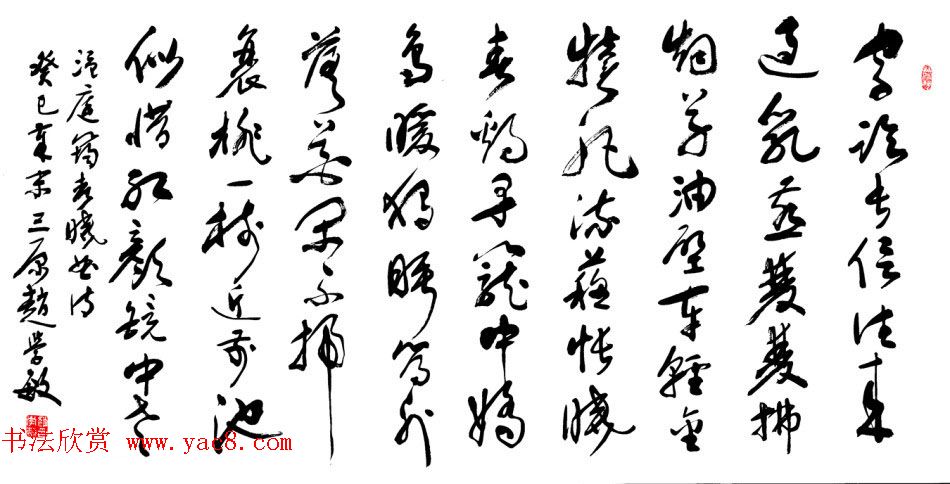 家临长信往来
道乳燕雙雙拂
烟草油壁车轻金
犊肥流蘇帐曉
春鸡早笼中嬌
鸟暖猶睡帘外
落花闲不掃
衰桃一树近前池
似惜红颜镜中老
温庭筠春曉曲诗
癸巳 三原趙學敏
书法欣赏 www.yac8.com